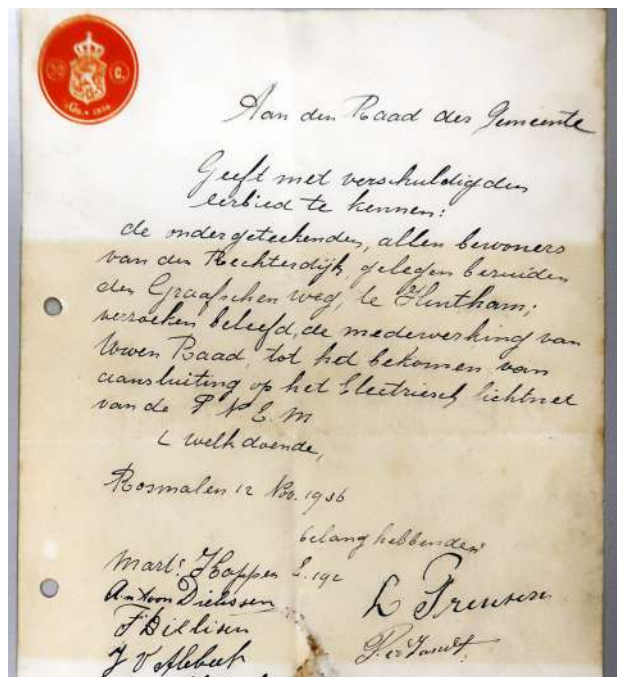 30 C.
Aan den Raad der Gemeente
Geeft met verschuldigden
eerbied te kennen:
de ondergeteekenden, allen bewoners
van den Rechterdijk, gelegen
den Graafschen weg, te Hintham;
verzoeken beleefd, de medewerking van
Uwen Raad, tot het bekomen van
aansluiting op het Electriesch lichtnet
van de P N E M
welk doende,
Rosmalen 12 Nov. 1936
belanghebbenden
Mart. Hoppen E. 192
Antoon Dielissen
F Dillisen
J V Albeek